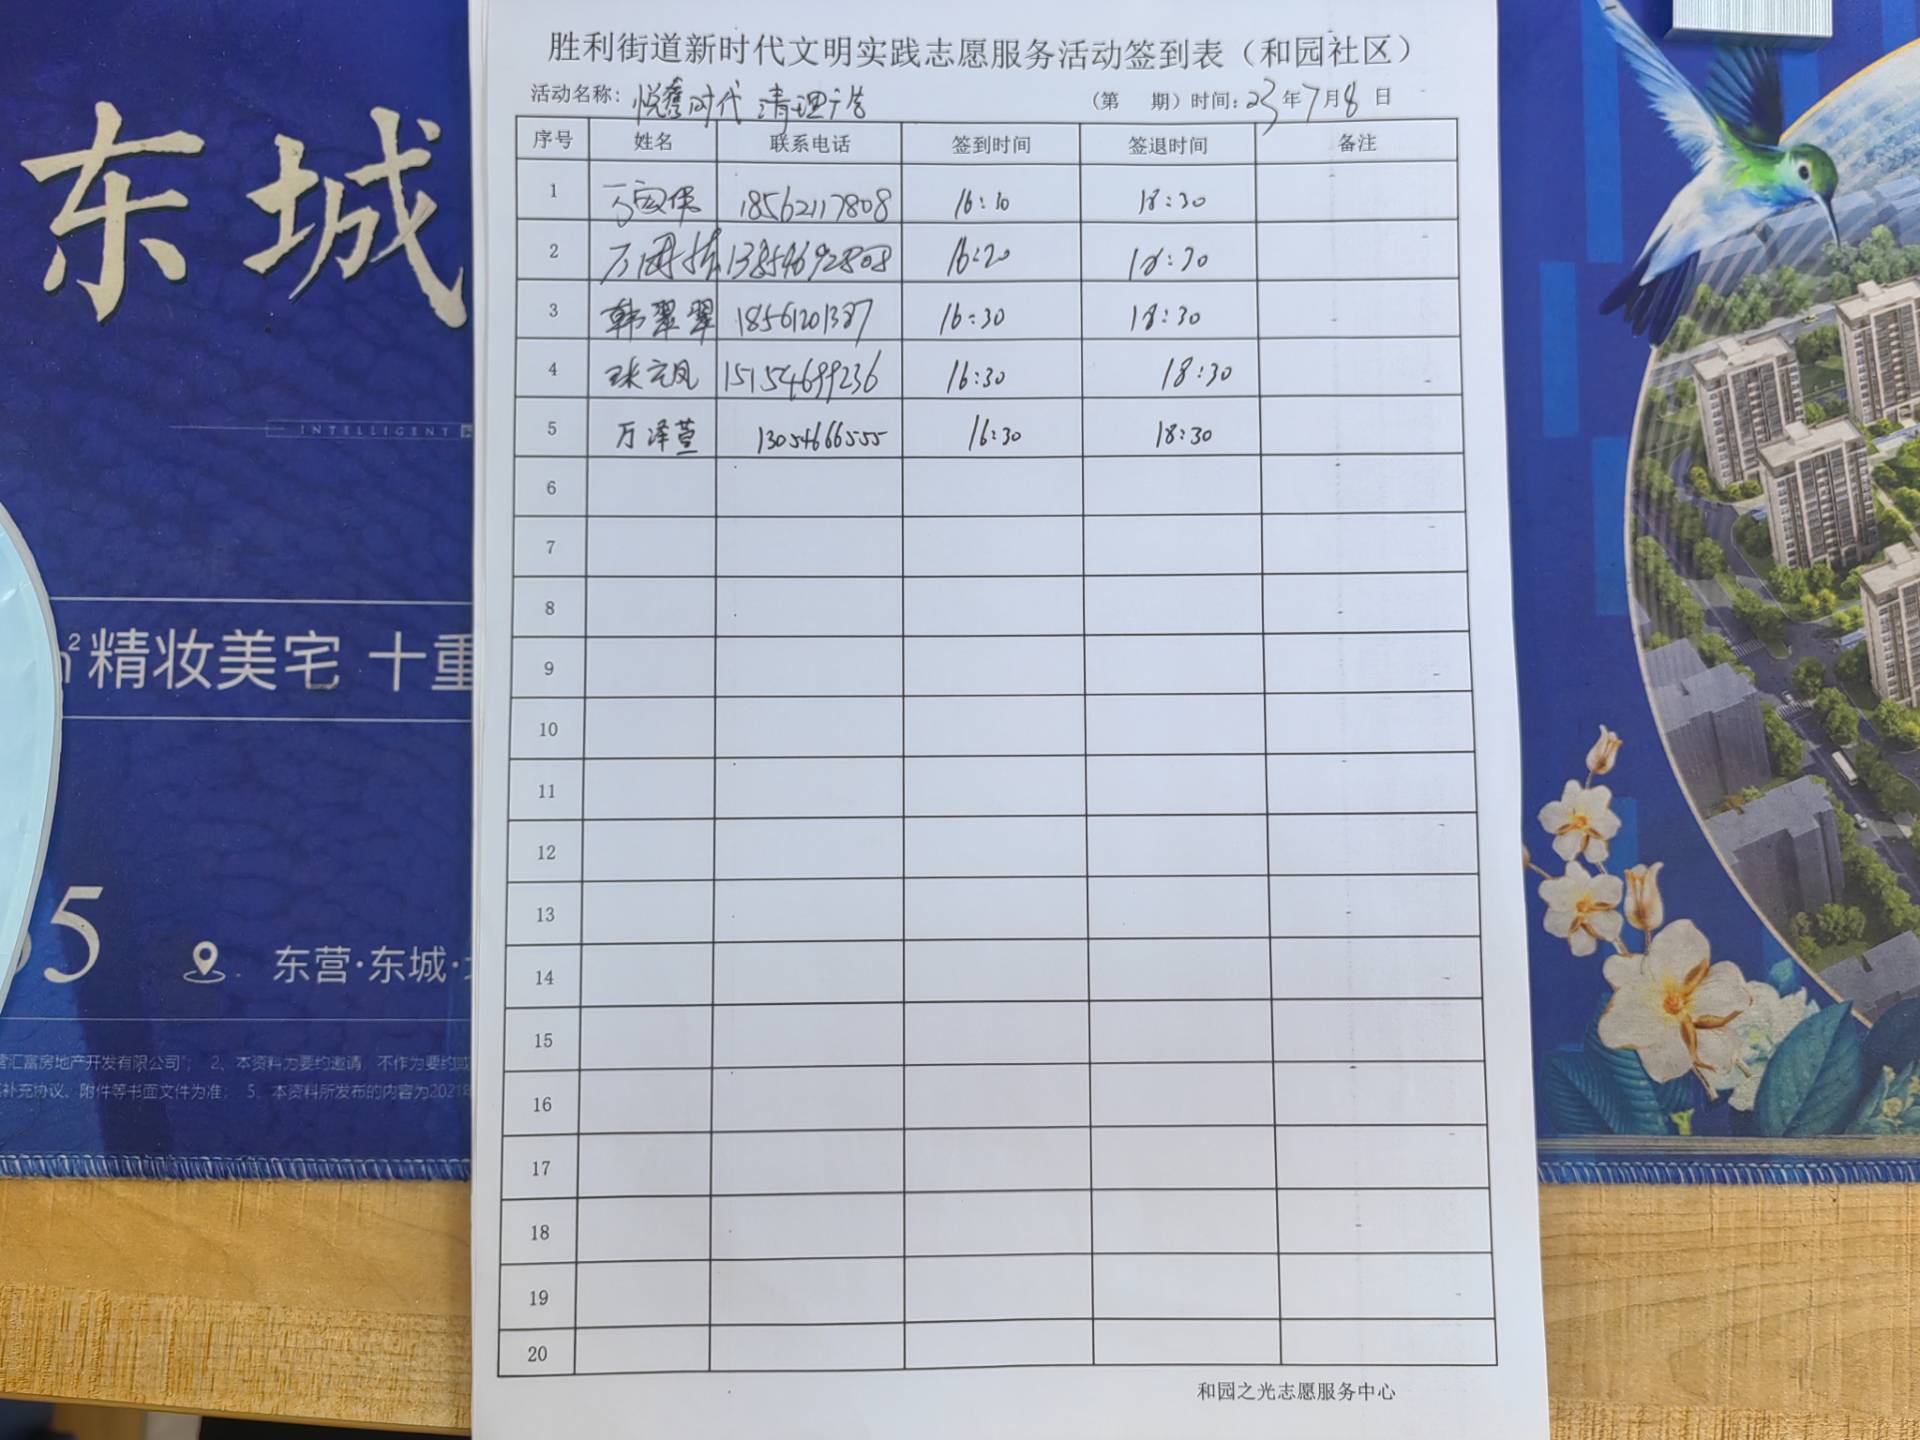 胜利街道新时代文明实践志愿服务活动签到表（和园社区）
活动名称： 时代 清理广告 （第 期）时间：23年7月8日
序号 姓名 联系电话 签到时间 签退时间 备注
1 18562117808 16:10 18:30
2 万 13854692808 16:20 18:30
3 韩翠翠 18561201387 16:30 18:30
4 张立凤 15154699236 16:30 18:30
5 万泽萱 13054666555 16:30 18:30
6
7
8
9
10
11
12
13
14
15
16
17
18
19
20
和园之光志愿服务中心
东城
INTELLIGENT
㎡精妆美宅 十重
5
东营·东城·
营汇富房地产开发有限公司"； 2、本资料为要约邀请，不作为要约或
补充协议、附件等书面文件为准； 5、本资料所发布的内容为2021年